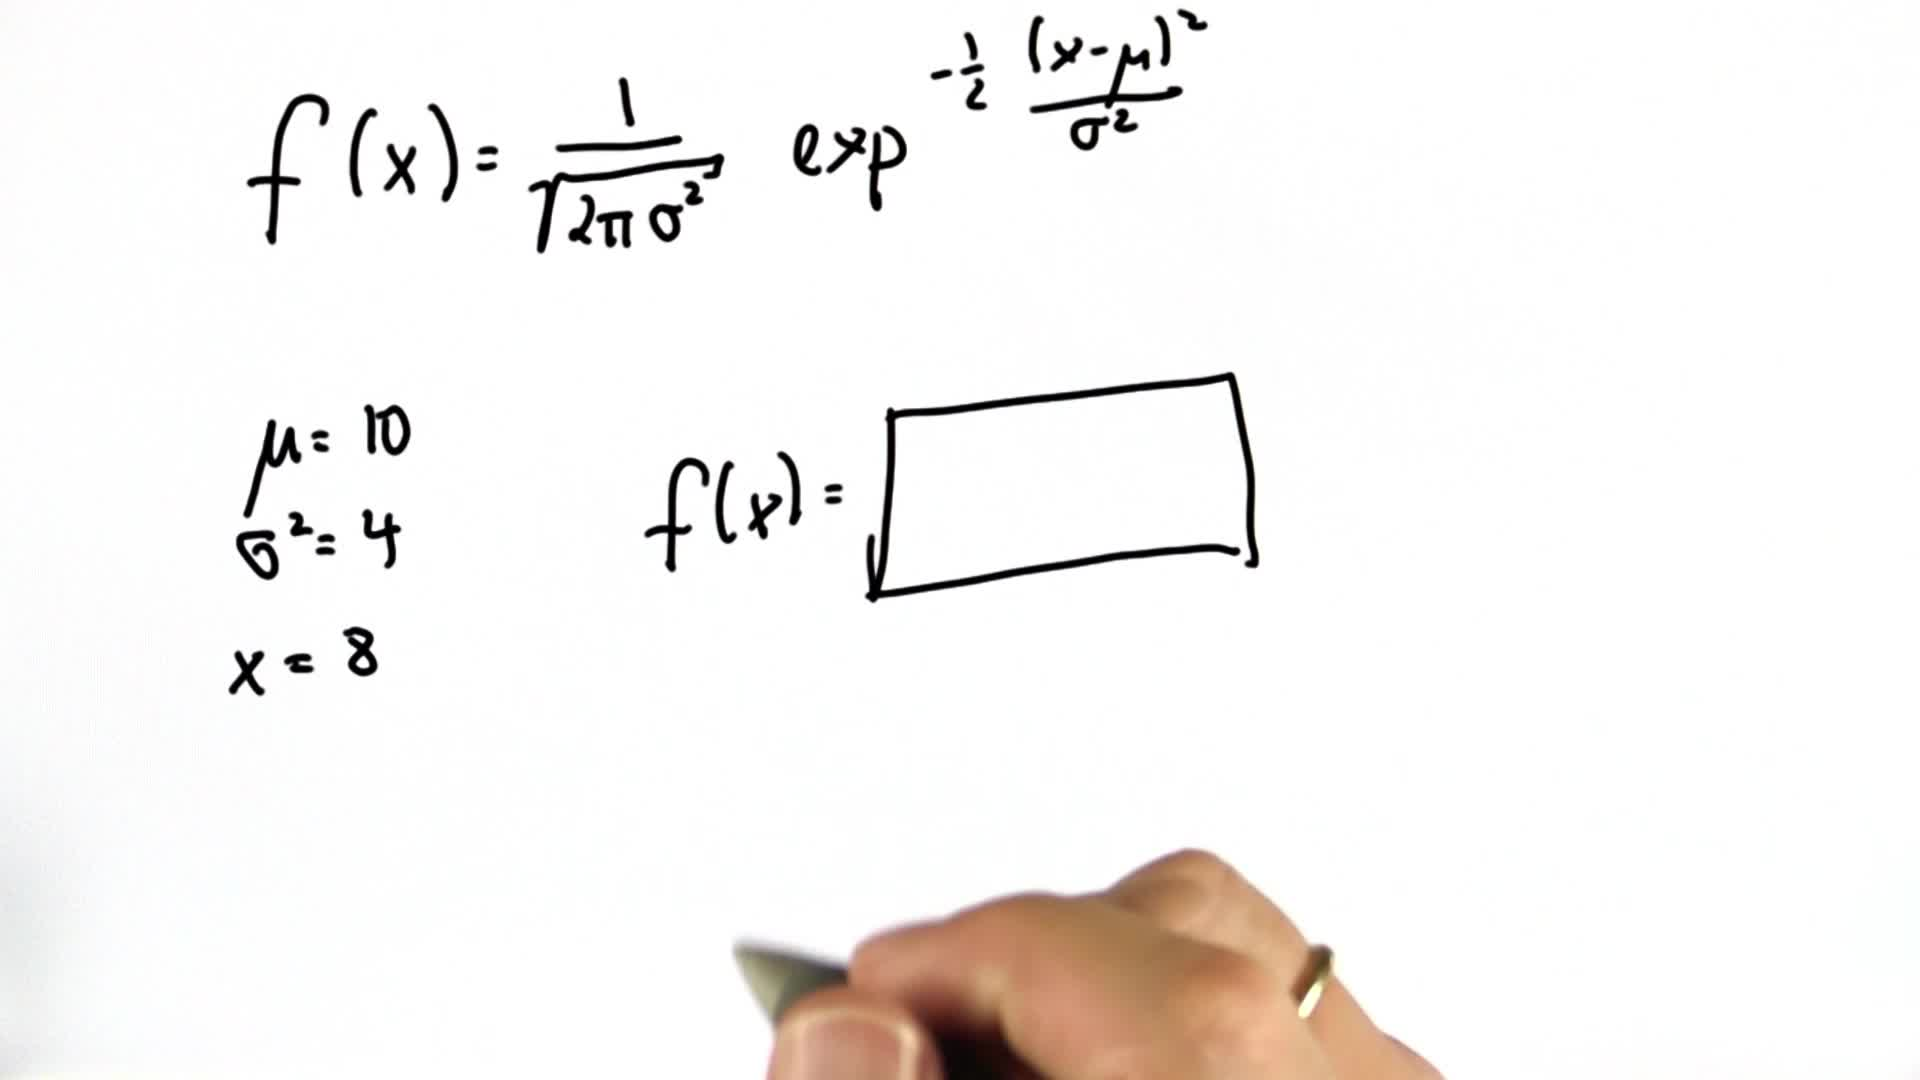 f(x) = 1/√(2πσ²) exp^(-1/2 (x-μ)²/σ²)
μ = 10
σ² = 4
f(x) =
x = 8